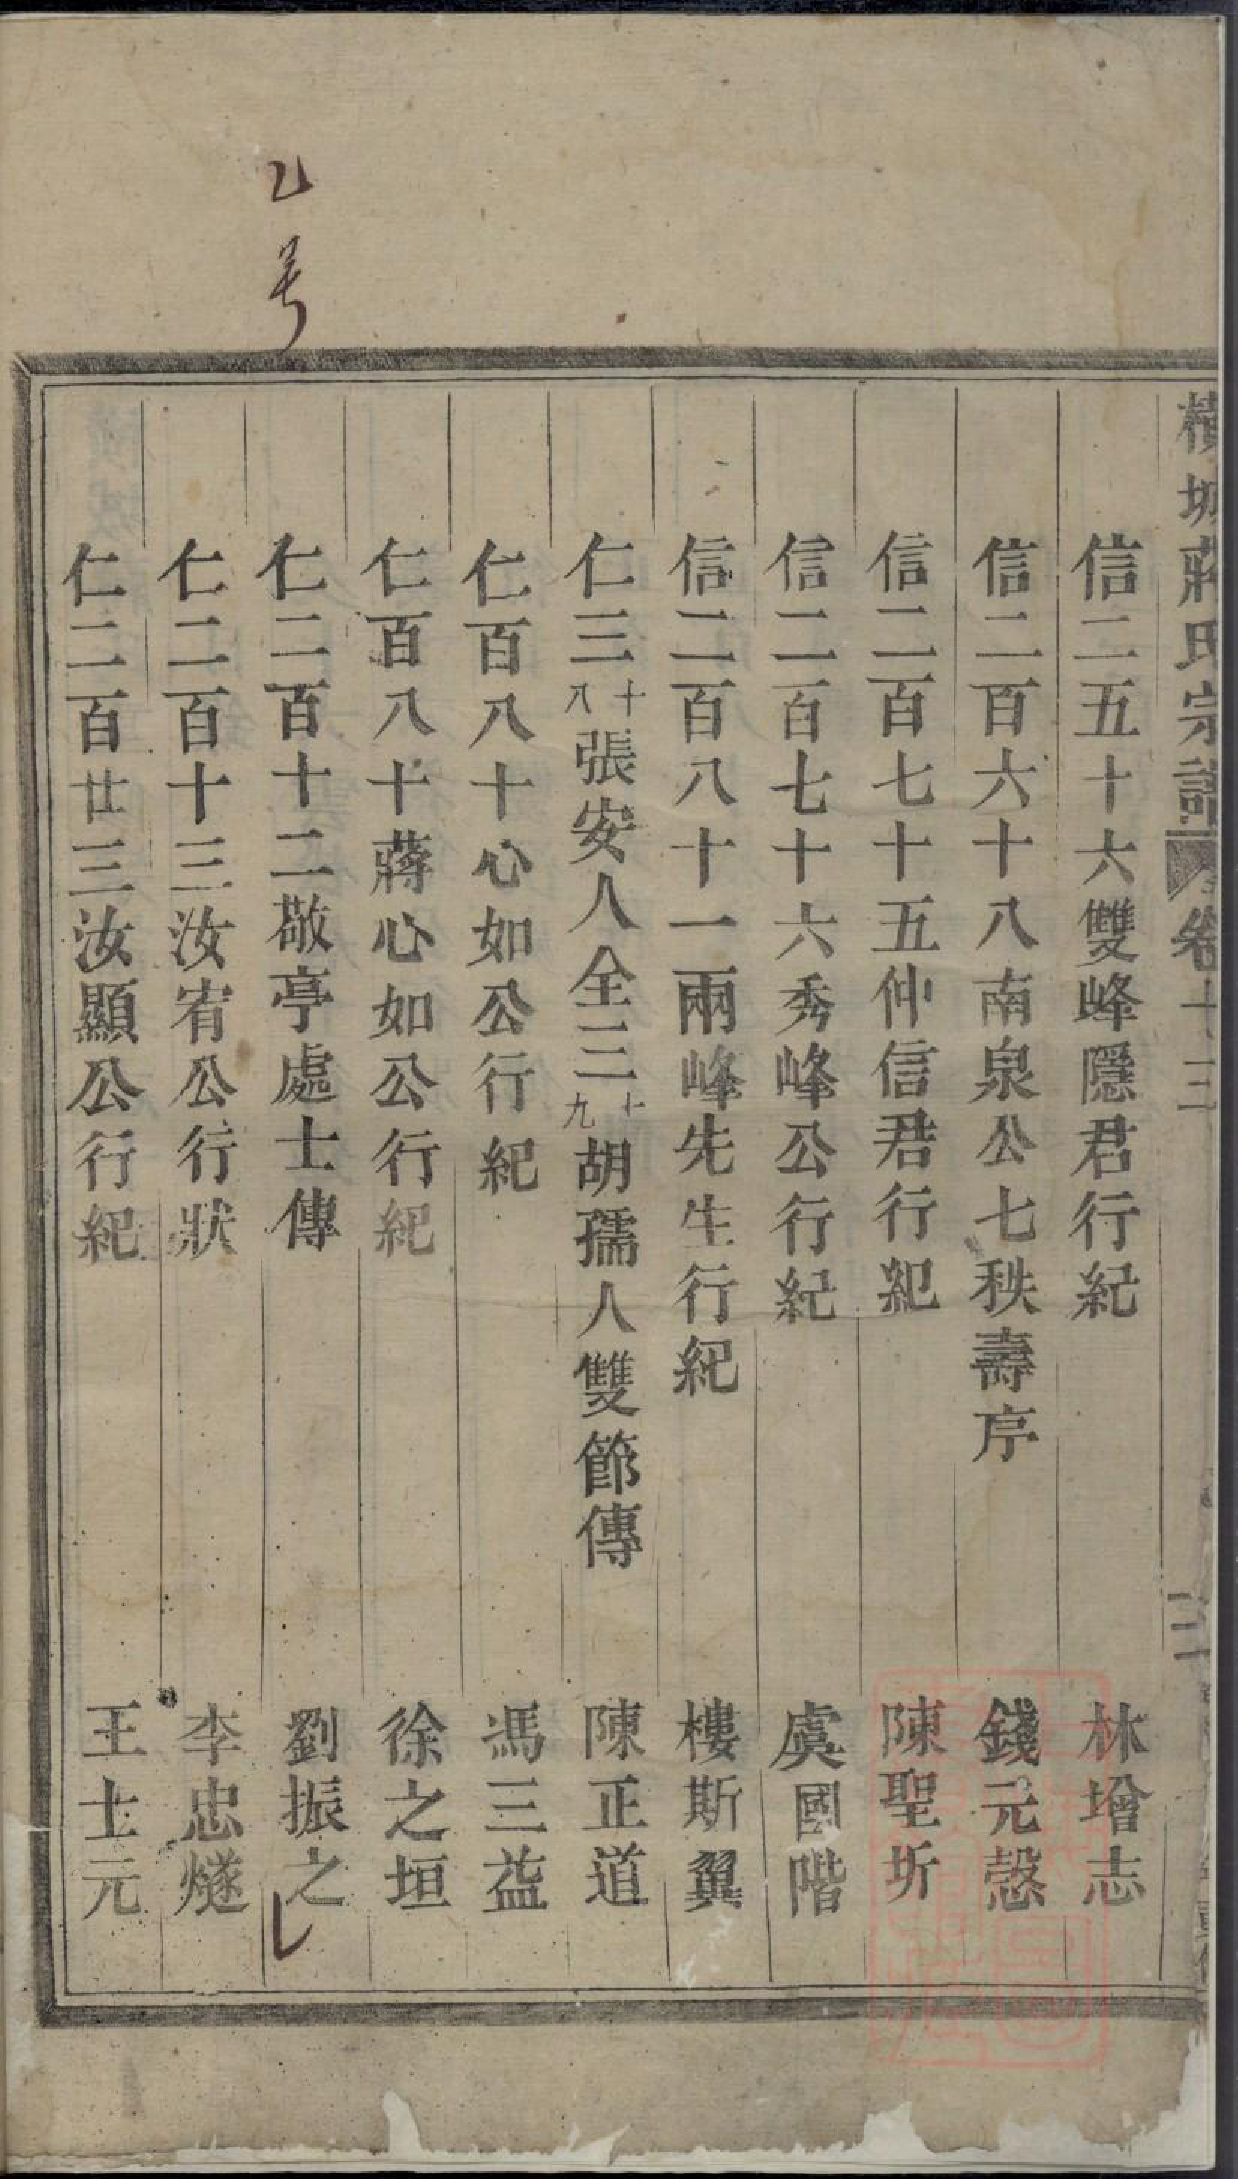 橫城蔣氏宗譜 卷十三 二
信二五十六雙峰隱君行紀 林增志
信二百六十八南泉公七秩壽序 錢元愨
信二百七十五仲信君行紀 陳聖圻
信二百七十六秀峰公行紀 虞國階
信二百八十一兩峰先生行紀 樓斯翼
仁三十八張安人全二十九胡孺人雙節傳 陳正道
仁百八十心如公行紀 馮三益
仁百八十蔣心如公行紀 徐之垣
仁二百十二敬亭處士傳 劉振之
仁二百十三汝宥公行狀 李忠燧
仁二百廿三汝顯公行紀 王士元
乙号